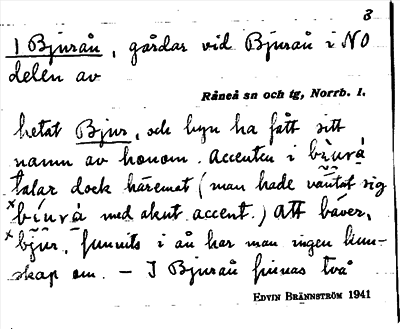 3
1 Bjuraå, gårdar vid Bjuraå i NO
delen av
Råneå sn och tg, Norrb. l.
hetat Bjur, och byn ha fått sitt
namn av honom. Accenten i bìurå
talar dock häremot (man hade väntat sig
*bíurå med akut accent.) Att bäver,
*bjur, funnits i ån har man ingen kun-
skap om. – I Bjuraå finnas två
EDVIN BRÄNNSTRÖM 1941